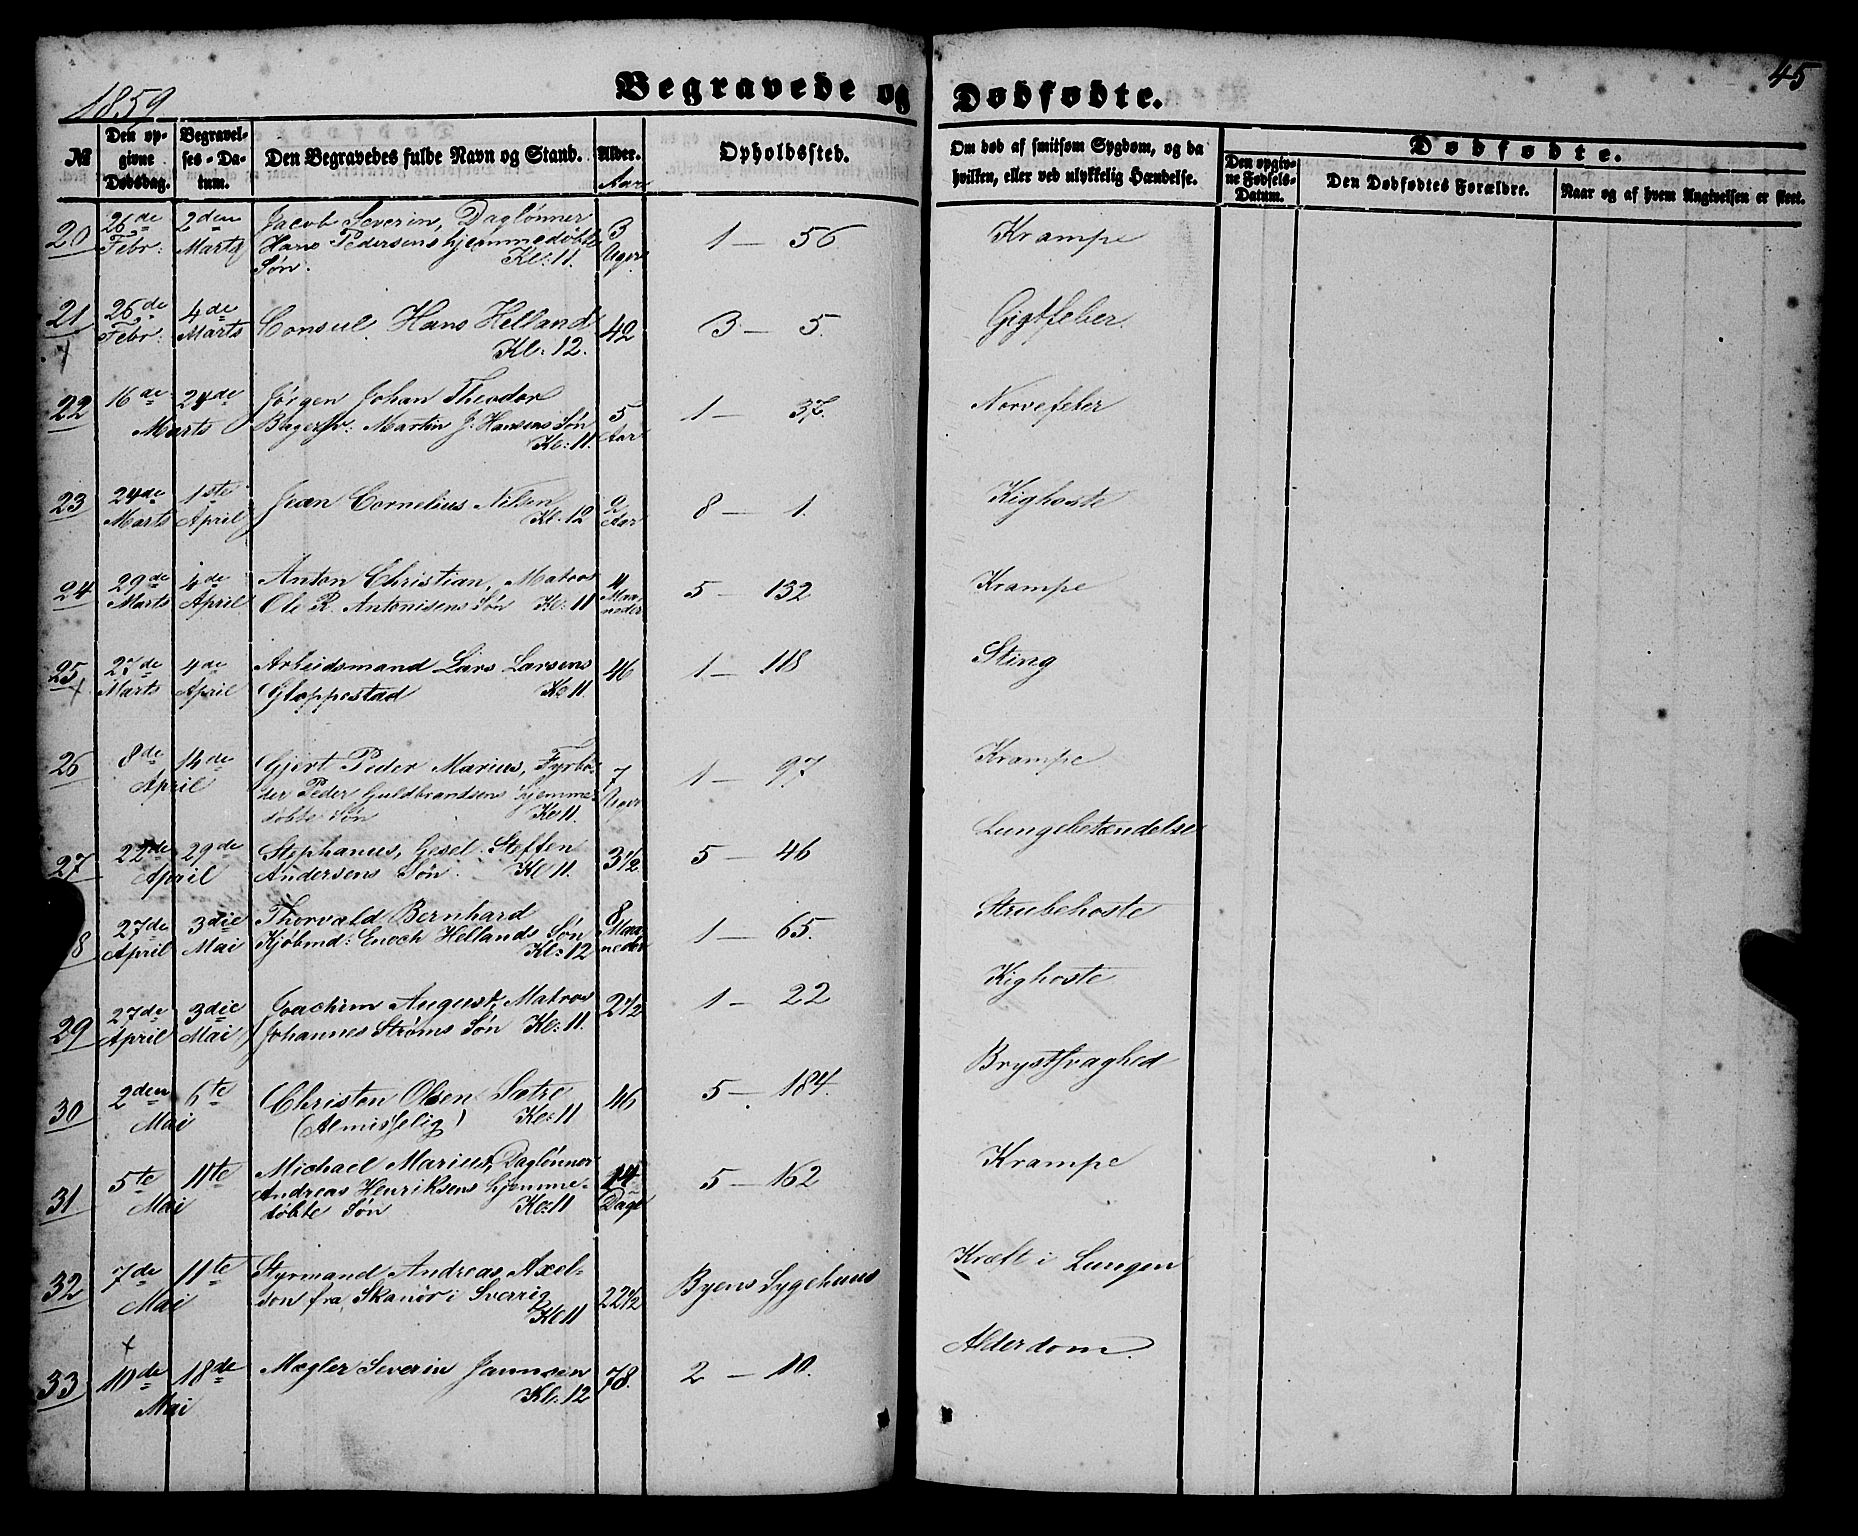 1859
Begravede og Dødfødte.
45
№
Den op-
givne
Dødsdag.
Begravel-
ses-Da-
tum.
Den Begravedes fulde Navn og Stand.
Alder.
Aar
Opholdssted.
Om død af smitsom Sygdom, og da
hvilken, eller ved ulykkelig Hændelse.
Dødfødte.
Den opgiv-
ne Fødsels-
Datum.
Den Dødfødtes Forældre.
Naar og af hvem Angivelsen er skeet.
20 26de Febr: 2den Marts Jacob Severin, Daglønner
Hans Pedersens hjemmedøbte
Søn. Kl: 11.
3 Uger 1 — 56 Krampe
21 26de Febr: 4de Marts Consul Hans Helland
Kl: 12.
42 3 — 5. Gigtfeber.
22 16de 24de Marts Jörgen Johan Theodor
Bagersv: Martin J. Hansens Søn
Kl: 11.
5 Aar 1 — 37. Nervefeber
23 24de Marts 1ste April Jean Cornelius Nilsen
Kl. 12
2 Aar 8 — 1. Kighoste
24 29de Marts 4de April Anton Christian, Matros
Ole R. Antonisens Søn Kl: 11
4 Maaneder 5 — 132 Krampe
25 27de Marts 4de April Arbeidsmand Lars Larsens
Gloppestad Kl 11
46 1 — 118 Sting
26 8de 14de April Gjert Peder Marius, Fyrbø-
der Peder Guldbrandsens hjemme-
døbte Søn Kl 11.
7 Uger 1 — 97 Krampe
27 22de 29de April Stephanus, Gesel. Steffen
Andersens Søn. Kl 11.
3 1/2 5 — 46 Lungebetændelse
8 27de April 3die Mai Thorvald Bernhard
Kjøbmd: Enoch Hellands Søn
Kl: 12
8 Maaneder 1 — 65. Strubehoste
29 27de April 3die Mai Joachim August, Matros
Johannes Strøms Søn Kl: 11.
2 1/2 1 — 22 Kighoste
30 2den 6te Mai Christen Olsen Sætre
(Almisselig) Kl: 11
46 5 — 184. Brystsvaghed
31 5te 11te Mai Michael Marius, Daglønner
Andreas Henriksens hjemme-
døbte Søn Kl: 11
14 Dage 5 — 162 Krampe
32 7de 11te Mai Styrmand Andreas Axel-
son fra Skanör i Sverrig
Kl 11
22 1/2 Byens Sygehuus Kræft i Lungen
33 10de 18de Mai Mægler Severin Jannsen
Kl: 12
78. 2 — 10. Alderdom.